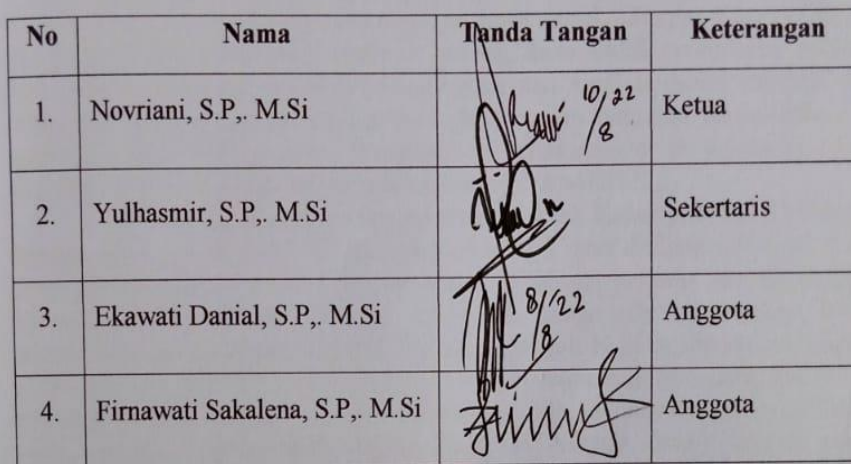 No Nama Tanda Tangan Keterangan
1. Novriani, S.P,. M.Si 10/22 8 Ketua
2. Yulhasmir, S.P,. M.Si Sekertaris
3. Ekawati Danial, S.P,. M.Si 8/'22 8 Anggota
4. Firnawati Sakalena, S.P,. M.Si Anggota